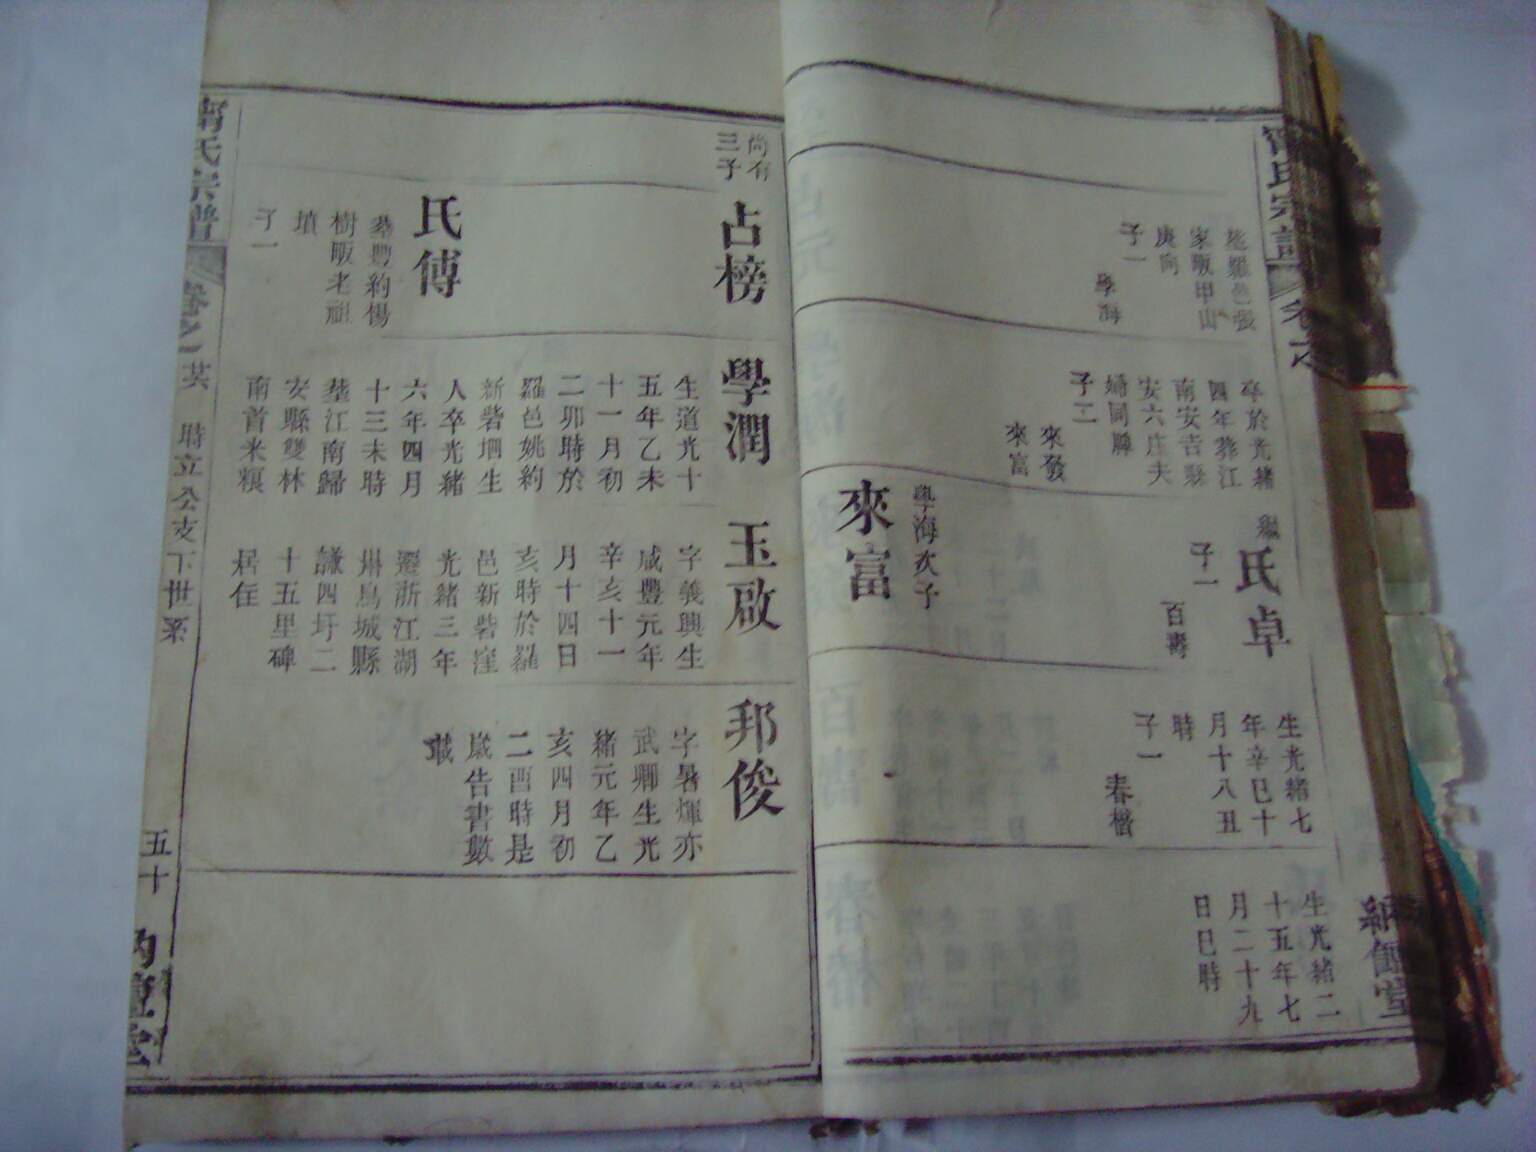 氏宗譜
卷之
綱倫堂
塟羅邑張
家畈甲山
庚向
子一
學海
卒於光緒
四年葬江
南安吉縣
安六庄夫
婦同歸
子二
來發
來富
繼
氏卓
子一
百壽
生光緒七
年辛巳十
月十八丑
時
子一
春楷
生光緒二
十五年七
月二十九
日巳時
學海次子
來富
尚有
三子
占榜
氏傅
塟豐約楊
樹畈老祖
墳
子一
學潤
生道光十
五年乙未
十一月初
二卯時於
羅邑姚約
新砦堌生
人卒光緒
六年四月
十三未時
塟江南歸
安縣雙林
南首米糗
玉啟
字義興生
咸豐元年
辛亥十一
月十四日
亥時於羅
邑新砦窪
光緒三年
遷浙江湖
州烏城縣
謙四圩二
十五里碑
居住
邦俊
字暑煇亦
武卿生光
緒元年乙
亥四月初
二酉時是
歲告書數
載
氏宗譜
卷之
時立公支下世系
五十
堂